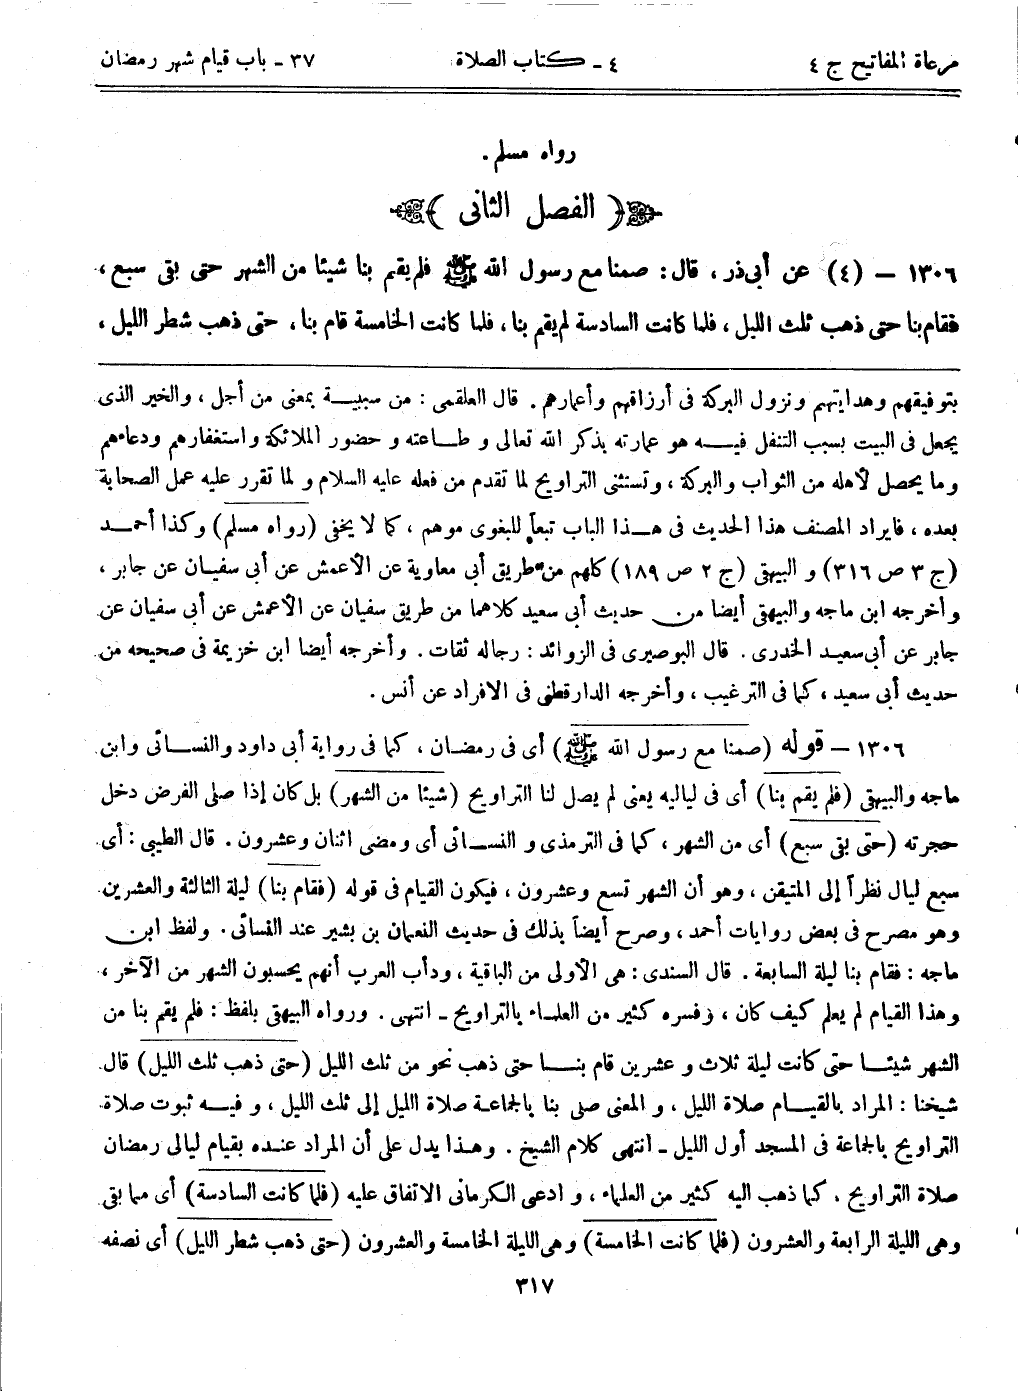 مرعاة المفاتيح ج ٤ ٤ ـ كتاب الصلاة ٣٧ ـ باب قيام شهر رمضان
رواه مسلم .
﴿ الفصل الثانى ﴾
١٣٠٦ — (٤) عن أبى ذر ، قال : صمنا مع رسول الله ﷺ فلم يقم بنا شيئا من الشهر حتى بقى سبع ،
فقام بنا حتى ذهب ثلث الليل ، فلما كانت السادسة لم يقم بنا ، فلما كانت الخامسة قام بنا ، حتى ذهب شطر الليل ،
بتوفيقهم وهدايتهم ونزول البركة فى أرزاقهم وأعمارهم . قال العلقمى : من سببية بمعنى من أجل ، والخير الذى
يجعل فى البيت بسبب التنفل فيه هو عمارته بذكر الله تعالى و طاعته و حضور الملائكة واستغفارهم ودعاءهم
وما يحصل لأهله من الثواب والبركة ، وتستثنى التراويح لما تقدم من فعله عليه السلام و لما تقرر عليه عمل الصحابة
بعده ، فايراد المصنف هذا الحديث فى هذا الباب تبعاً للبغوى موهم ، كما لا يخفى (رواه مسلم) وكذا أحمد
(ج ٣ ص ٣١٦) و البيهقى (ج ٢ ص ١٨٩) كلهم من طريق أبى معاوية عن الأعمش عن أبى سفيان عن جابر ،
وأخرجه ابن ماجه والبيهقى أيضا من حديث أبى سعيد كلاهما من طريق سفيان عن الأعمش عن أبى سفيان عن
جابر عن أبى سعيد الخدرى . قال البوصيرى فى الزوائد : رجاله ثقات . وأخرجه أيضا ابن خزيمة فى صحيحه من
حديث أبى سعيد ، كما فى الترغيب ، وأخرجه الدارقطنى فى الافراد عن أنس .
١٣٠٦ — قوله (صمنا مع رسول الله ﷺ) أى فى رمضان ، كما فى رواية أبى داود والنسائى وابن
ماجه والبيهقى (فلم يقم بنا) أى فى لياليه يعنى لم يصل لنا التراويح (شيئا من الشهر) بل كان إذا صلى الفرض دخل
حجرته (حتى بقى سبع) أى من الشهر ، كما فى الترمذى و النسائى أى ومضى اثنان وعشرون . قال الطيبى : أى
سبع ليال نظراً إلى المتيقن ، وهو أن الشهر تسع وعشرون ، فيكون القيام فى قوله (فقام بنا) ليلة الثالثة والعشرين
وهو مصرح فى بعض روايات أحمد ، وصرح أيضاً بذلك فى حديث النعمان بن بشير عند النسائى . ولفظ ابن
ماجه : فقام بنا ليلة السابعة . قال السندى : هى الأولى من الباقية ، ودأب العرب أنهم يحسبون الشهر من الآخر ،
وهذا القيام لم يعلم كيف كان ، وفسره كثير من العلماء بالتراويح ـ انتهى . ورواه البيهقى بلفظ : فلم يقم بنا من
الشهر شيئا حتى كانت ليلة ثلاث و عشرين قام بنا حتى ذهب نحو من ثلث الليل (حتى ذهب ثلث الليل) قال
شيخنا : المراد بالقيام صلاة الليل ، و المعنى صلى بنا بالجماعة صلاة الليل إلى ثلث الليل ، و فيه ثبوت صلاة
التراويح بالجماعة فى المسجد أول الليل ـ انتهى كلام الشيخ . وهذا يدل على أن المراد عنده بقيام ليالى رمضان
صلاة التراويح . كما ذهب اليه كثير من العلماء ، و ادعى الكرمانى الاتفاق عليه (فلما كانت السادسة) أى مما بقى
وهى الليلة الرابعة والعشرون (فلما كانت الخامسة) وهى الليلة الخامسة والعشرون (حتى ذهب شطر الليل) أى نصفه
٣١٧